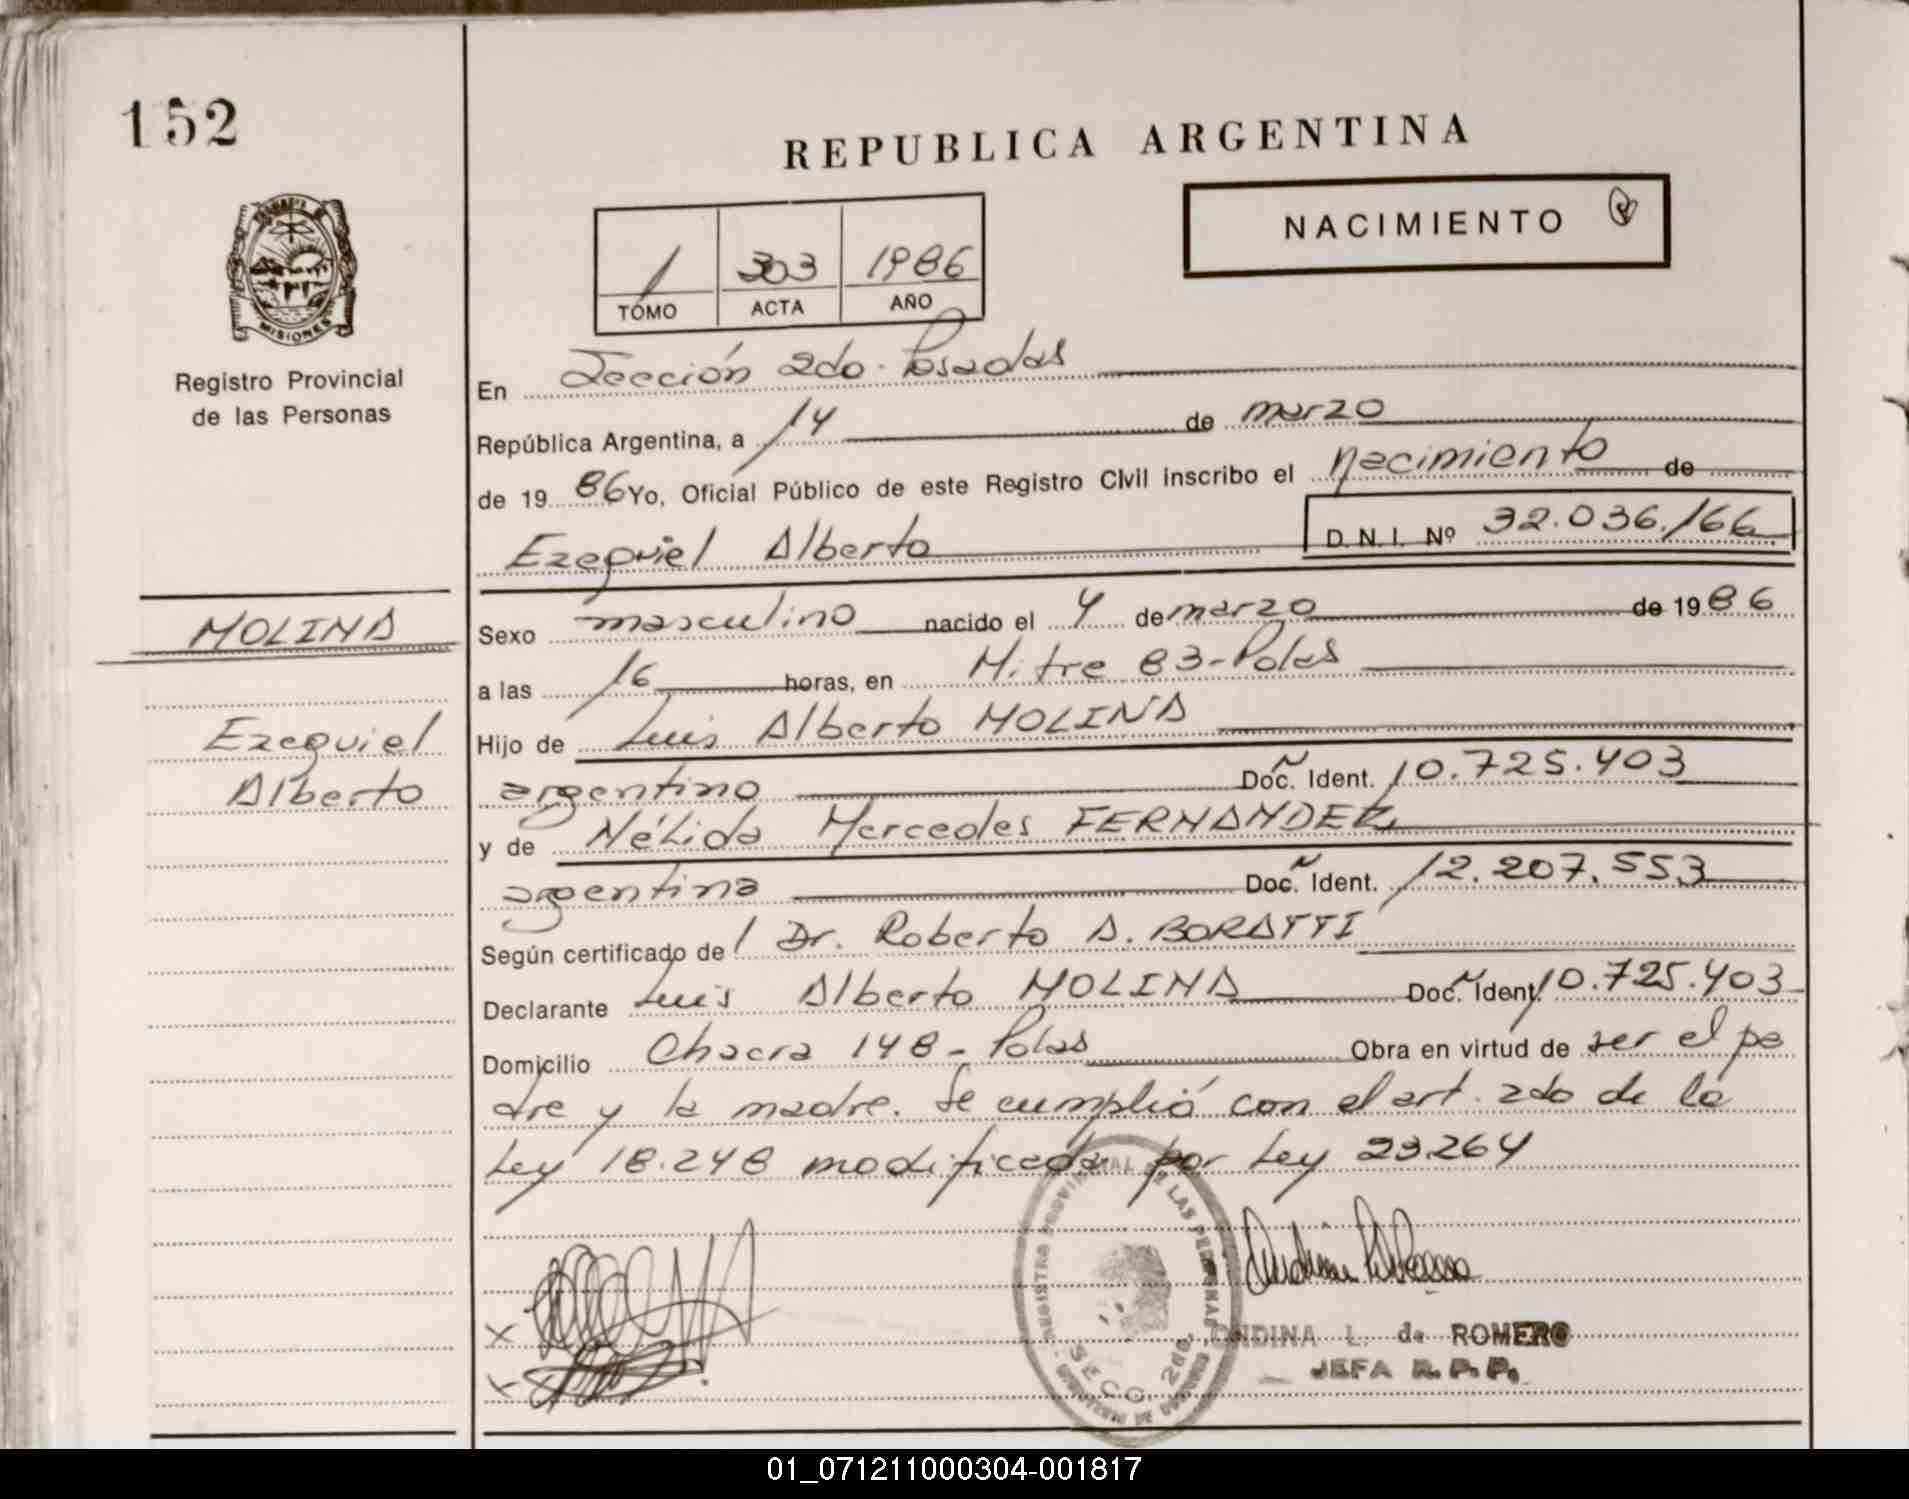 152
REPUBLICA ARGENTINA
NACIMIENTO
1 303 1986
TOMO ACTA AÑO
MISIONES
Registro Provincial
de las Personas
En Sección 2do. Posadas
República Argentina, a 14 de marzo
de 1986 Yo, Oficial Público de este Registro Civil inscribo el nacimiento de
Ezequiel Alberto D. N. I. Nº 32.036.166
MOLINA
Ezequiel
Alberto
Sexo masculino nacido el 4 de marzo de 1986
a las 16 horas, en Mitre 83-Pdas
Hijo de Luis Alberto MOLINA
argentino Doc. Ident. 10.725.403
y de Nélida Mercedes FERNANDEZ
argentina Doc. Ident. 12.207.553
Según certificado del Dr. Roberto A. BORATTI
Declarante Luis Alberto MOLINA Doc. Ident. 10.725.403
Domicilio Chacra 148-Pdas Obra en virtud de ser el pa
dre y la madre. Se cumplió con el art. 2do de la
Ley 18.248 modificada por Ley 23.264
REGISTRO PROVINCIAL DE LAS PERSONAS
SECC. 2da.
ONDINA L. de ROMERO
JEFA R. P. P.
01_071211000304-001817